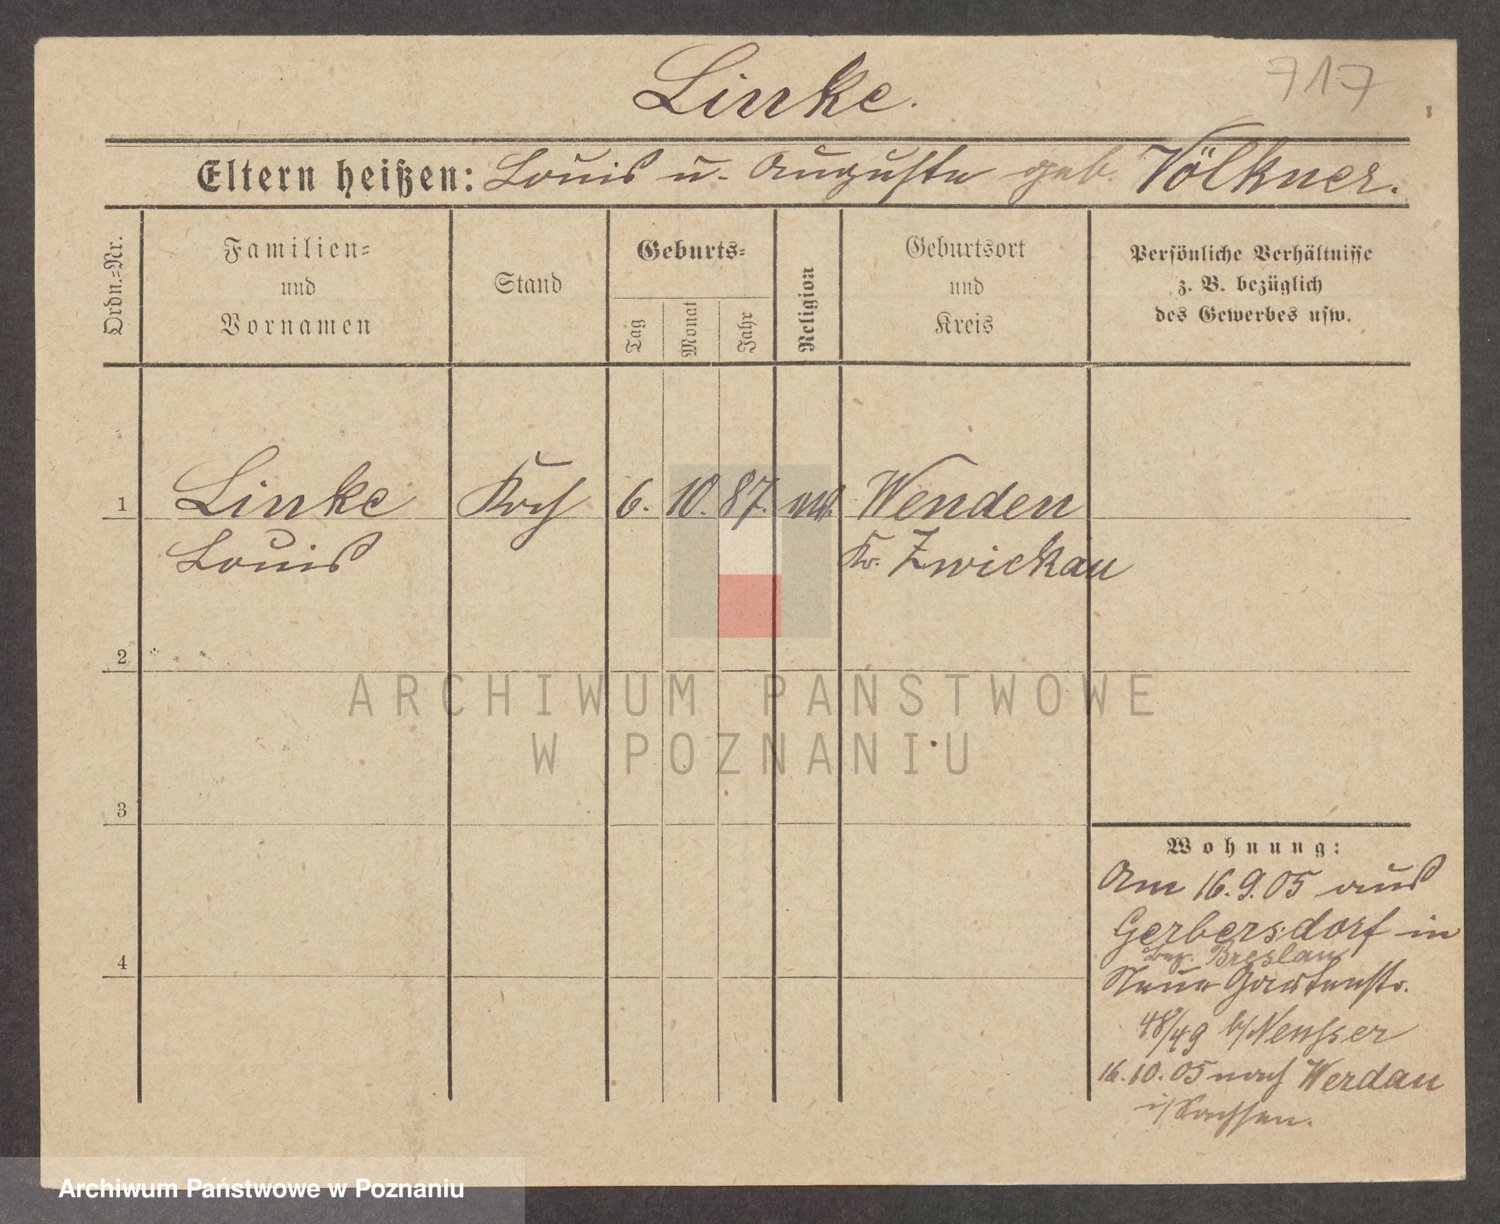 717
Linke.
Eltern heißen: Louis u. Auguste geb. Völkner.
Ordn.-Nr.
Familien-
und
Vornamen
Stand
Geburts-
Tag
Monat
Jahr
Religion
Geburtsort
und
Kreis
Persönliche Verhältnisse
z. B. bezüglich
des Gewerbes usw.
1 Linke Koch 6. 10. 87. Wenden
Louis Kr. Zwickau
2
3
4
Wohnung:
Am 16.9.05 aus
Gerbersdorf in
bez. Breslau
Neue Gartenstr.
48/49 b/ Neusser
16.10.05 nach Werdau
i/ Sachsen.
ARCHIWUM PAŃSTWOWE
W POZNANIU
Archiwum Państwowe w Poznaniu